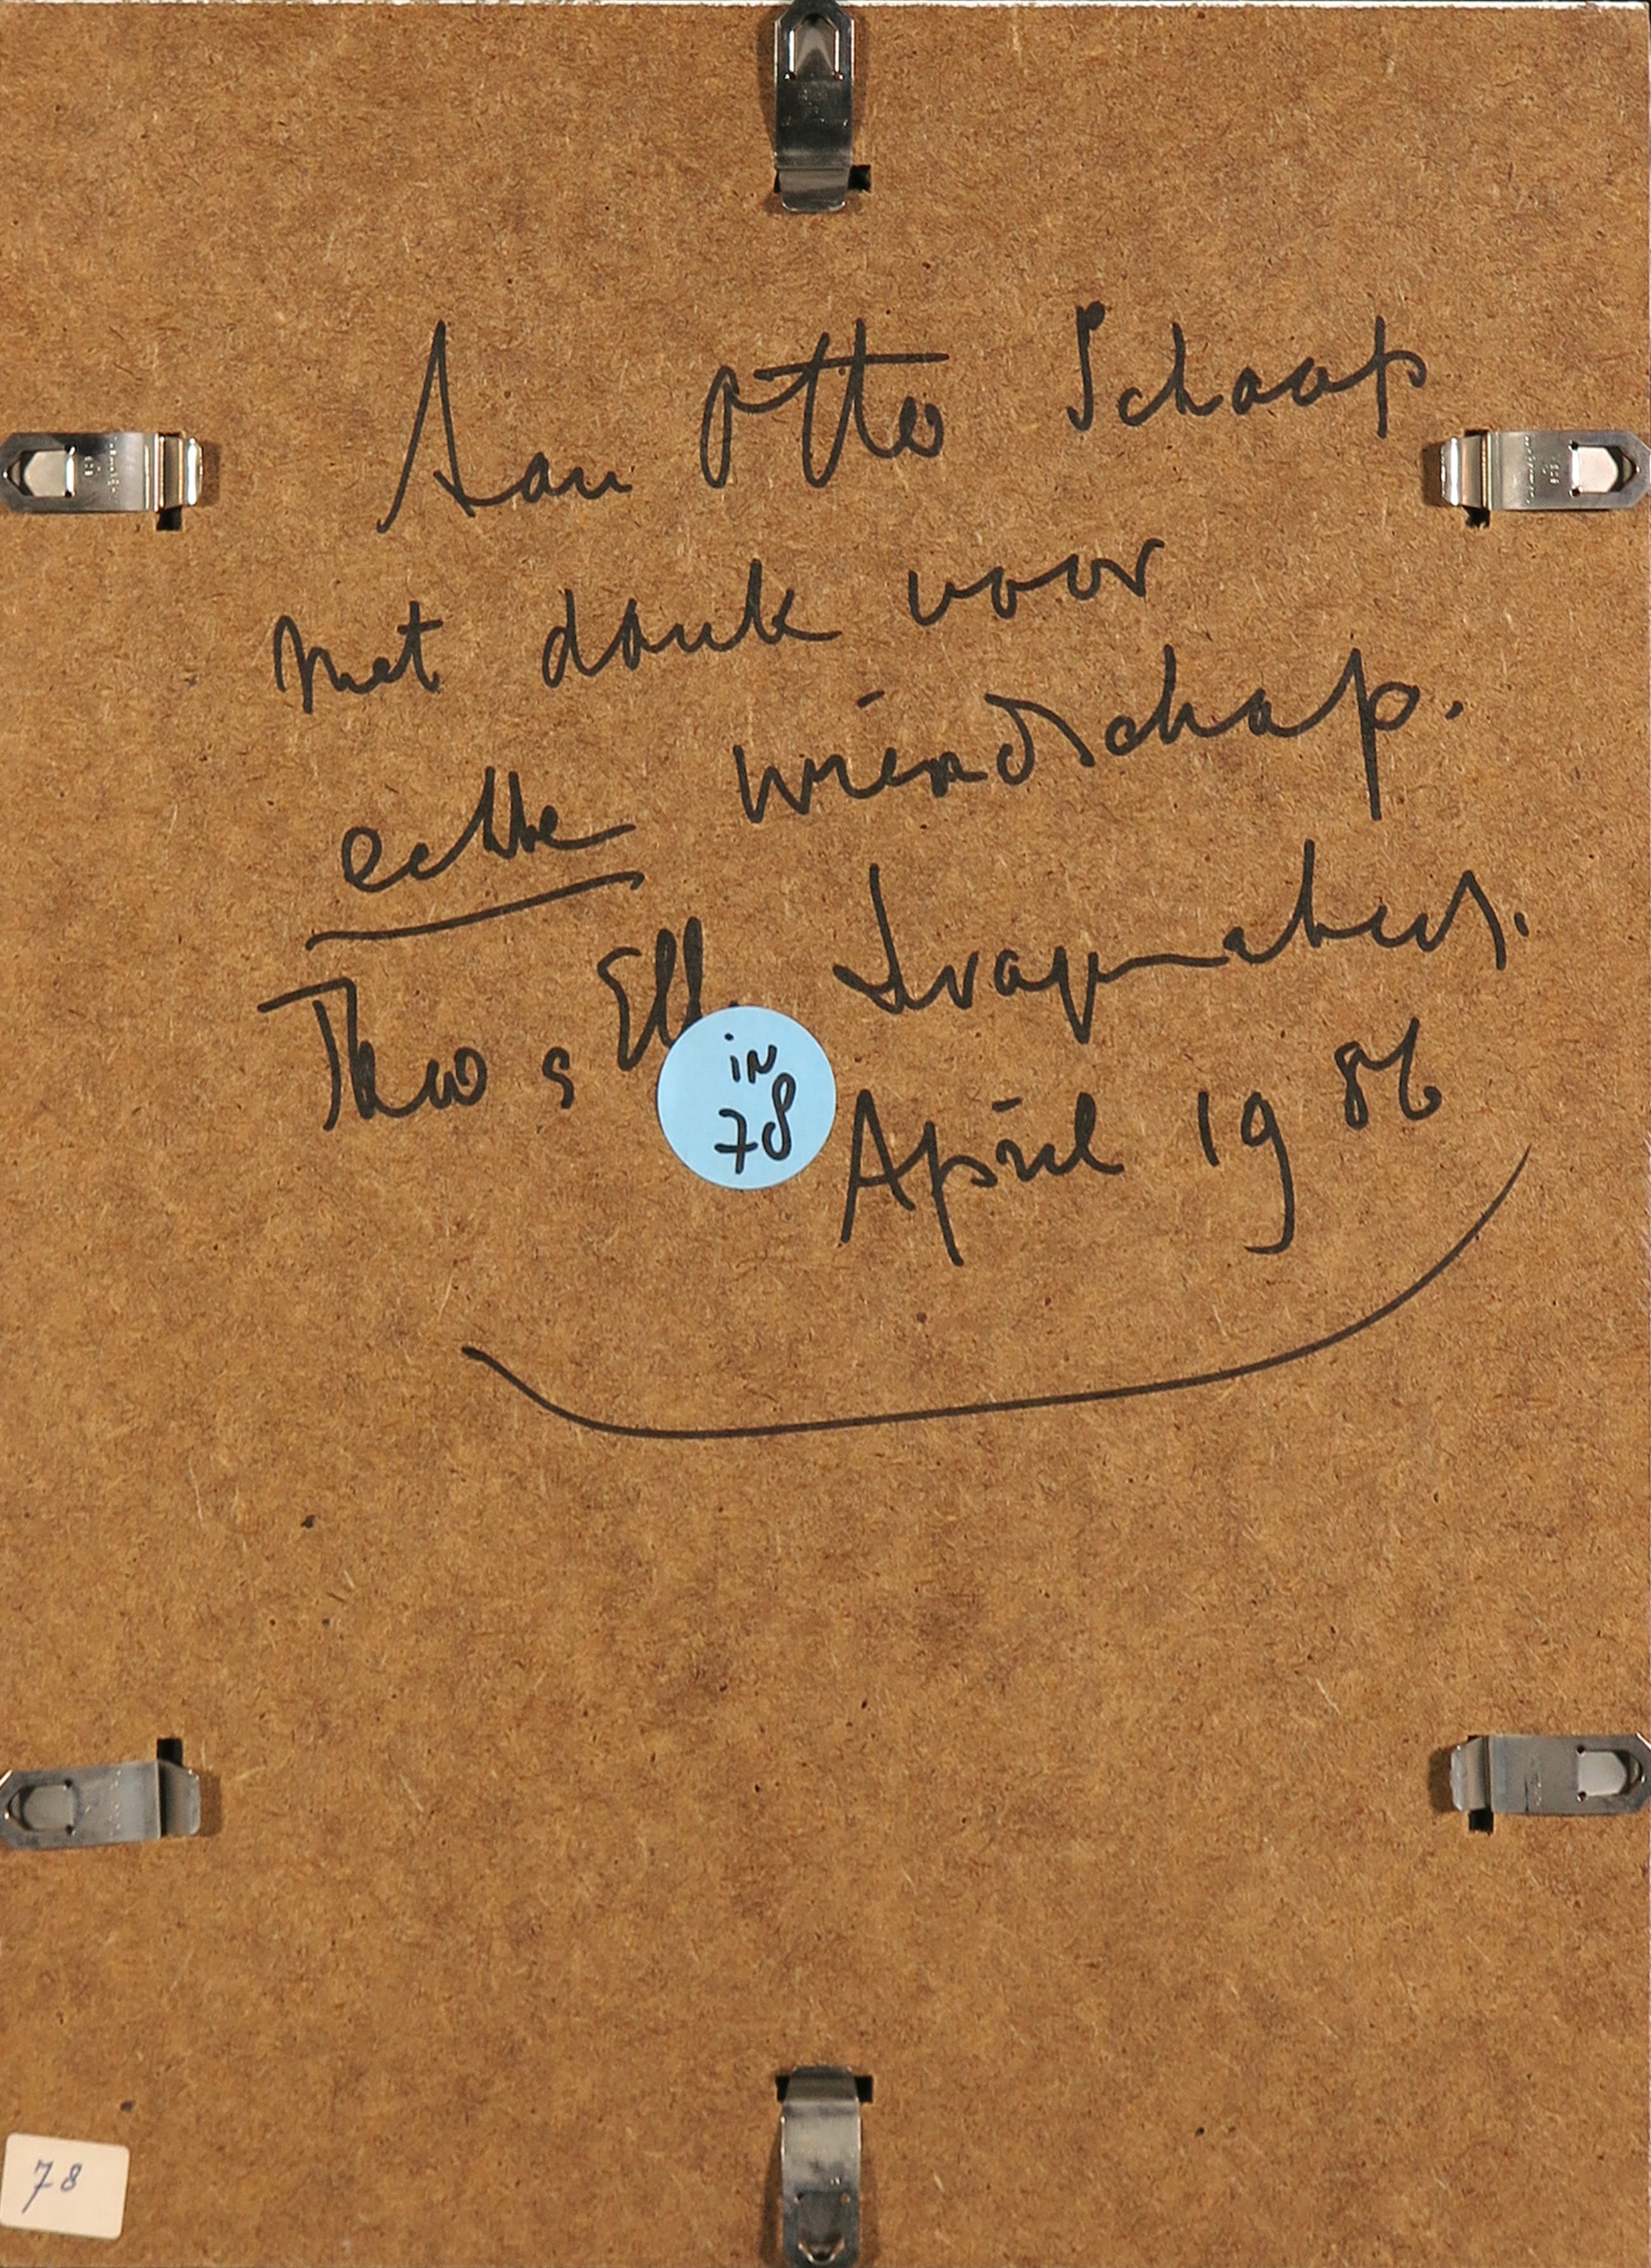 Aan Otto Schaap
met dank voor
echte vriendschap.
Theo & Ell
April 1986
in
78
78